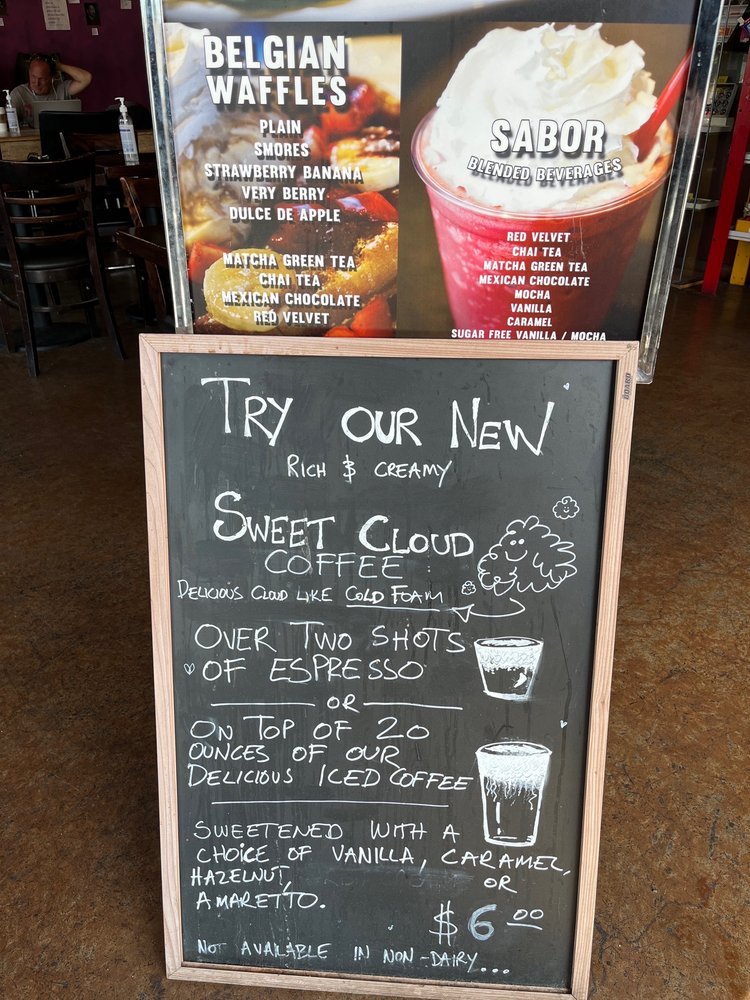 BELGIAN
WAFFLES
PLAIN
SMORES
STRAWBERRY BANANA
VERY BERRY
DULCE DE APPLE
MATCHA GREEN TEA
CHAI TEA
MEXICAN CHOCOLATE
RED VELVET
SABOR
BLENDED BEVERAGES
RED VELVET
CHAI TEA
MATCHA GREEN TEA
MEXICAN CHOCOLATE
MOCHA
VANILLA
CARAMEL
SUGAR FREE VANILLA / MOCHA
TRY OUR NEW
RICH & CREAMY
SWEET CLOUD
COFFEE
DELICIOUS CLOUD LIKE COLD FOAM
OVER TWO SHOTS
OF ESPRESSO
OR
ON TOP OF 20
OUNCES OF OUR
DELICIOUS ICED COFFEE
SWEETENED WITH A
CHOICE OF VANILLA, CARAMEL,
HAZELNUT, OR
AMARETTO.
$6.00
NOT AVAILABLE IN NON-DAIRY...